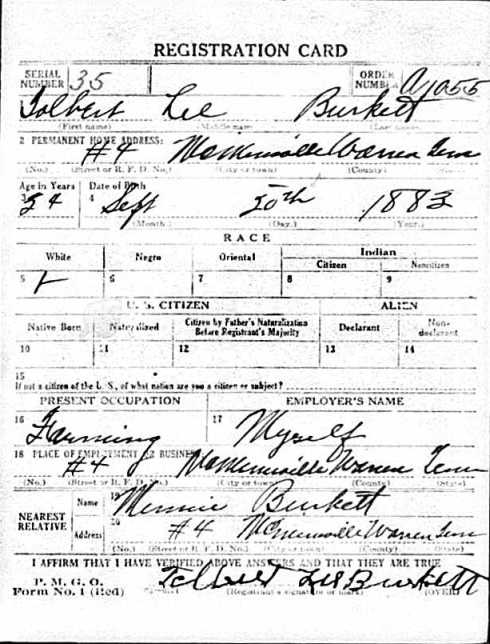 REGISTRATION CARD
SERIAL NUMBER 35 ORDER NUMBER
Tolbert Lee Burkett
(First name) (Middle name) (Last name)
2 PERMANENT HOME ADDRESS:
#4 McMinnville Warren Tenn
(No.) (Street or R. F. D. No.) (City or town) (County) (State)
Age in Years Date of Birth
3 34 4 Sept 20th 1883
(Month.) (Day.) (Year.)
RACE
White Negro Oriental Indian
Citizen Noncitizen
5 6 7 8 9
U. S. CITIZEN ALIEN
Native Born Naturalized Citizen by Father's Naturalization Before Registrant's Majority Declarant Non-declarant
10 11 12 13 14
15
If not a citizen of the U. S., of what nation are you a citizen or subject?
PRESENT OCCUPATION EMPLOYER'S NAME
16 Farming 17 Myself
18 PLACE OF EMPLOYMENT OR BUSINESS
#4 McMinnville Warren Tenn
(No.) (Street or R. F. D. No.) (City or town) (County) (State)
NEAREST RELATIVE Name 19 Minnie Burkett
Address 20 #4 McMinnville Warren Tenn
(No.) (Street or R. F. D. No.) (City or town) (County) (State)
I AFFIRM THAT I HAVE VERIFIED ABOVE ANSWERS AND THAT THEY ARE TRUE
P. M. G. O.
Form No. 1 (Red) Tolbert Lee Burkett
(Registrant's signature or mark) (OVER)